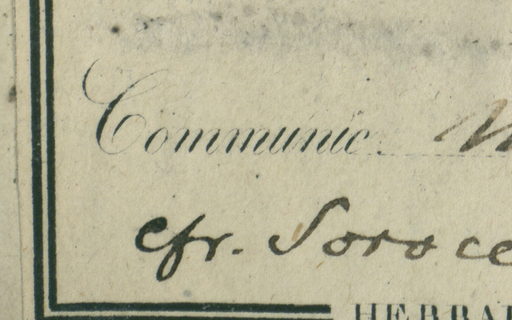 Communic.
cfr. Soroce
HERBAR